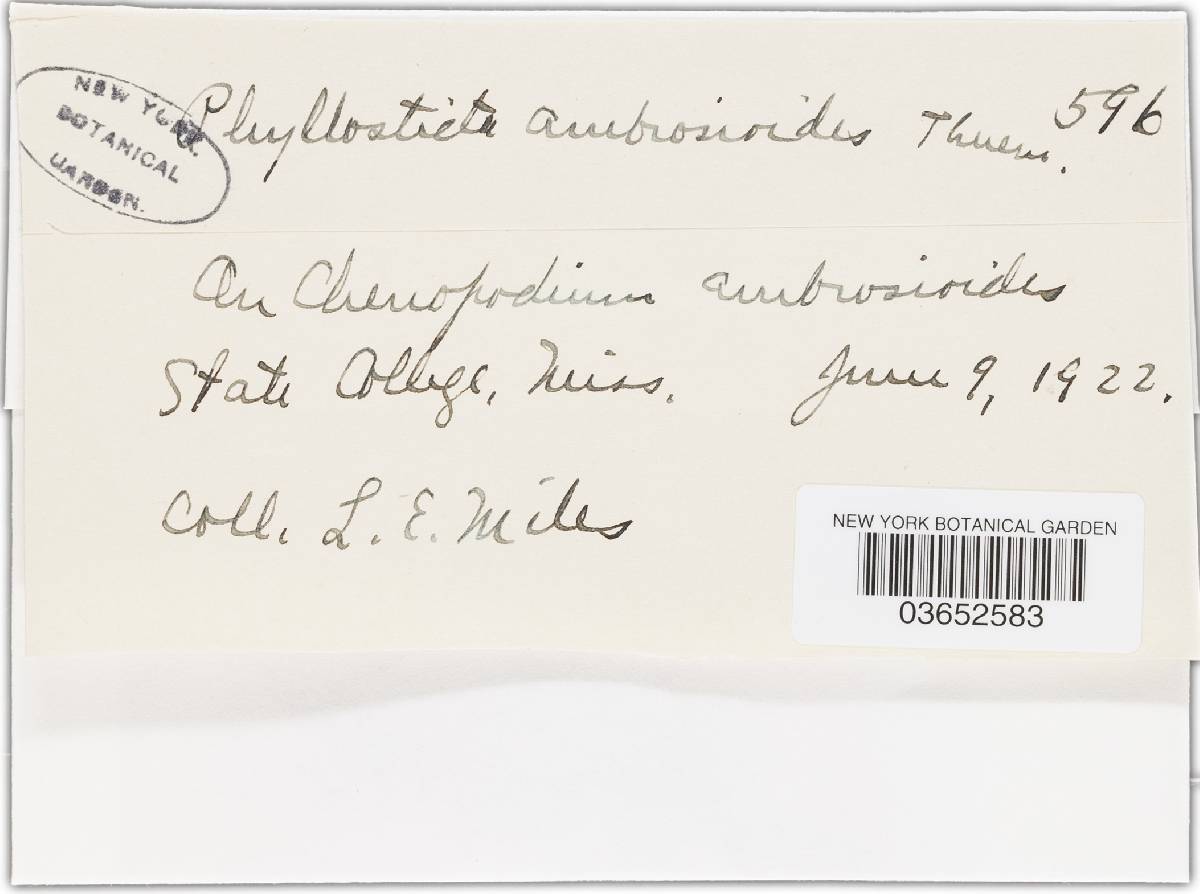 NEW YORK
BOTANICAL
GARDEN.
Phyllosticta ambrosioides Thuem. 596
On Chenopodium ambrosioides
State College, Miss. June 9, 1922.
Coll. L. E. Miles
NEW YORK BOTANICAL GARDEN
03652583